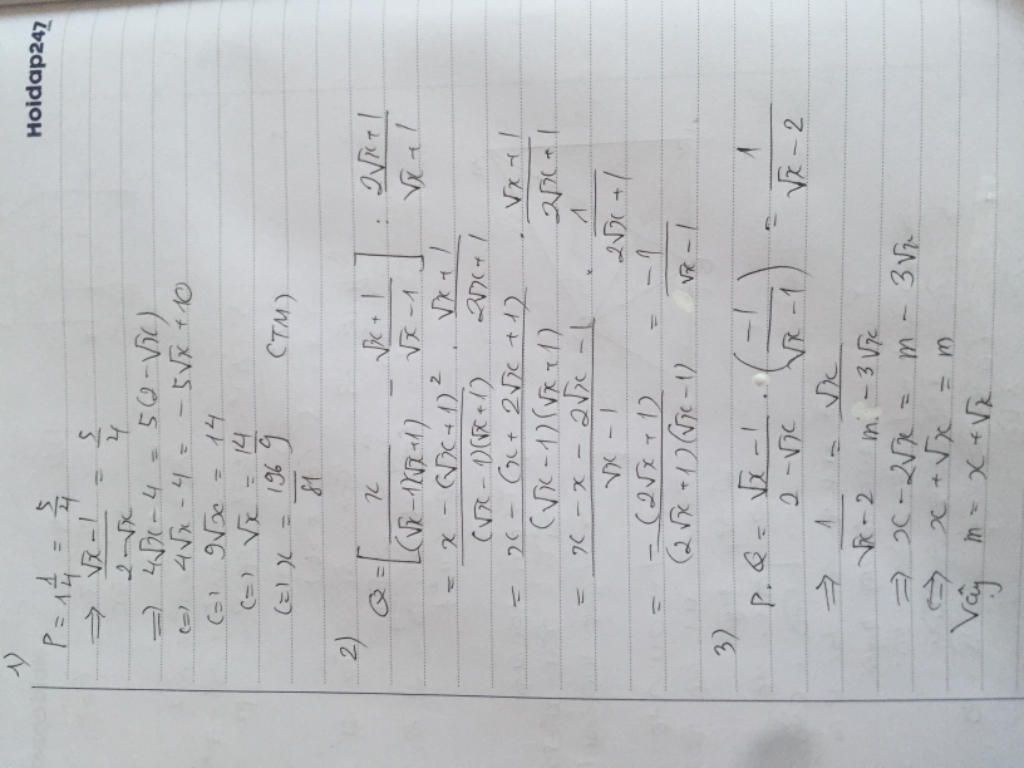 Hoidap247
1)
P = 1 1/4 = 5/4
⇒ (√x - 1)/(2 - √x) = 5/4
⇒ 4√x - 4 = 5(2 - √x)
(=) 4√x - 4 = -5√x + 10
(=) 9√x = 14
(=) √x = 14/9
(=) x = 196/81 (TM)
2)
Q = [x/((√x - 1)(√x + 1)) - (√x + 1)/(√x - 1)] : (2√x + 1)/(√x + 1)
= (x - (√x + 1)²)/((√x - 1)(√x + 1)) . (√x + 1)/(2√x + 1)
= (x - (x + 2√x + 1))/((√x - 1)(√x + 1)) . (√x + 1)/(2√x + 1)
= (x - x - 2√x - 1)/(√x - 1) . 1/(2√x + 1)
= (-(2√x + 1))/((2√x + 1)(√x - 1)) = -1/(√x - 1)
3)
P . Q = (√x - 1)/(2 - √x) . (-1/(√x - 1)) = 1/(√x - 2)
⇒ 1/(√x - 2) = √x/(m - 3√x)
⇒ x - 2√x = m - 3√x
⇔ x + √x = m
Vậy m = x + √x